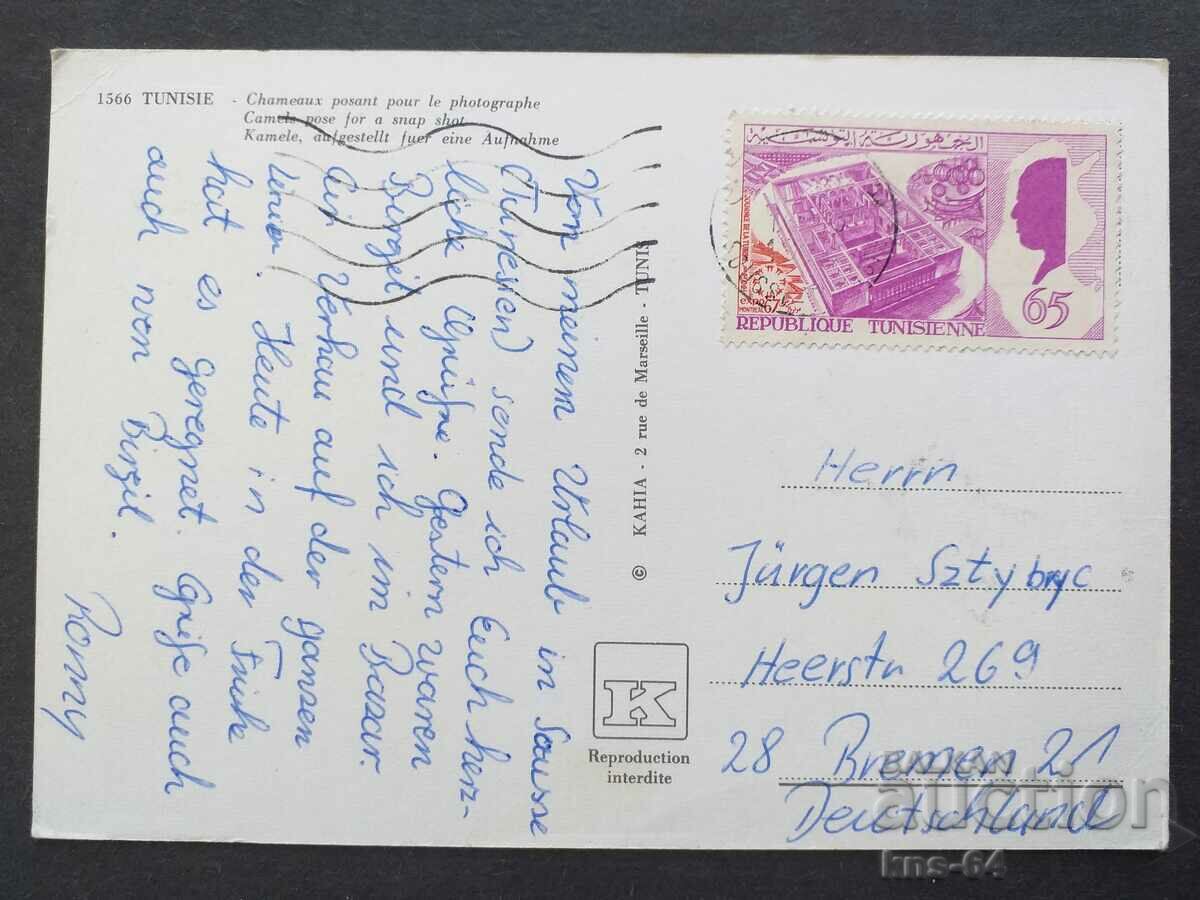 1566 TUNISIE - Chameaux posant pour le photographe
Camels pose for a snap shot
Kamele, aufgestellt fuer eine Aufnahme
Vom meinem Urlaub in Sousse
(Tunesien) sende ich Euch herz-
liche Grüße. Gestern waren
Birgit und ich im Basar.
Ein Verhau auf der ganzen
Linie. Heute in der Frühe
hat es geregnet. Grüße auch
auch von Birgit.
Romy
© KAHIA - 2 rue de Marseille - TUNIS
K
Reproduction
interdite
الجمهورية التونسية
expo 67
MONTREAL
65
REPUBLIQUE TUNISIENNE
Herrn
Jürgen Sztybryc
Heerstr 269
28 Bremen 21
Deutschland
BALKAN
auction
kns-64